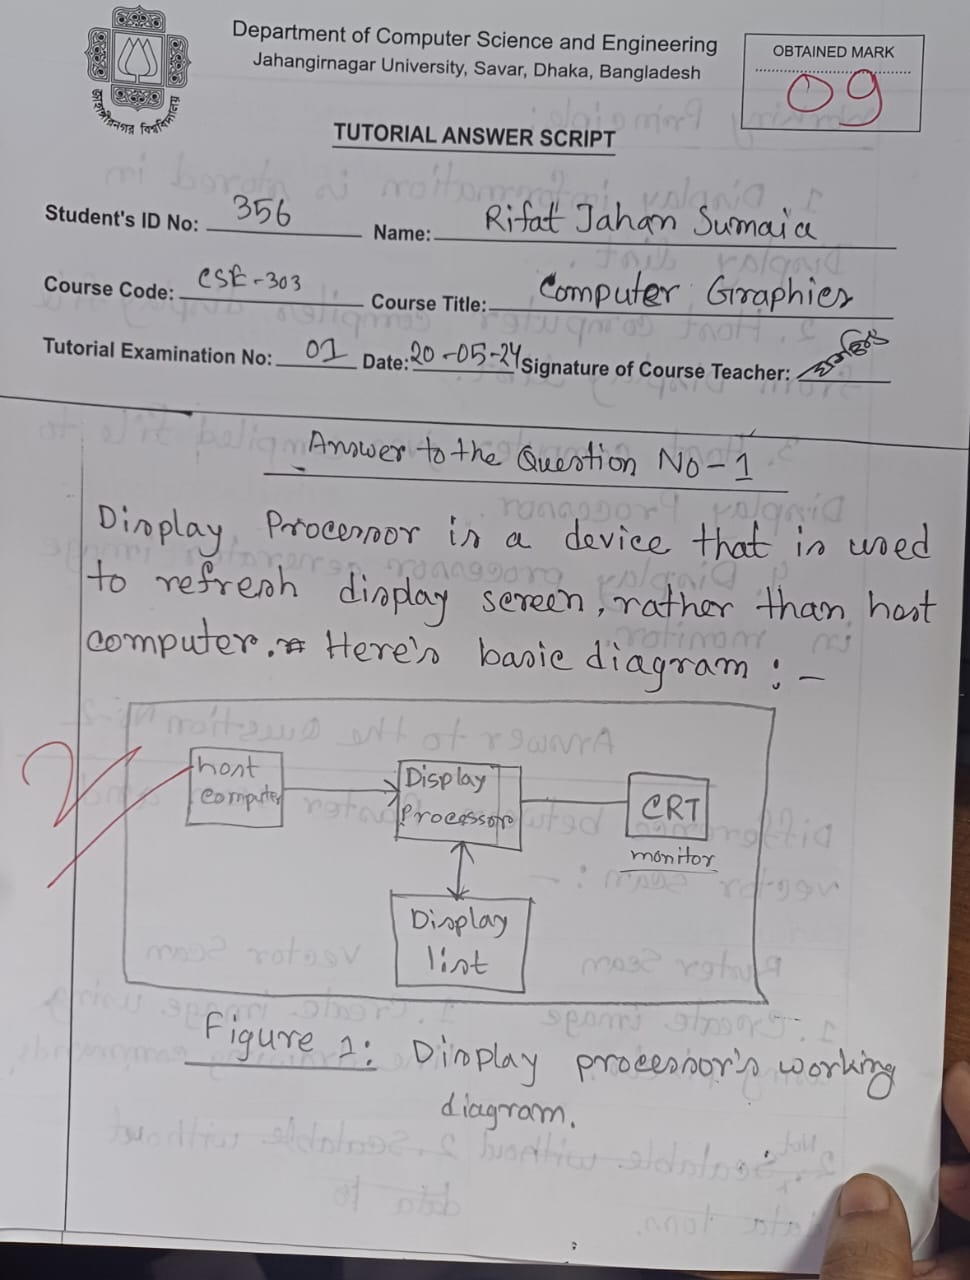 Department of Computer Science and Engineering
Jahangirnagar University, Savar, Dhaka, Bangladesh
OBTAINED MARK
09
জাহাঙ্গীরনগর বিশ্ববিদ্যালয়
TUTORIAL ANSWER SCRIPT
Student's ID No: 356 Name: Rifat Jahan Sumaia
Course Code: CSE-303 Course Title: Computer Graphics
Tutorial Examination No: 01 Date: 20-05-24 Signature of Course Teacher:
Answer to the Question No-1
Display Processor is a device that is used
to refresh display screen, rather than host
computer. Here's basic diagram :-
host
computer
Display
Processor
CRT
monitor
Display
list
Figure 1: Display processor's working
diagram.